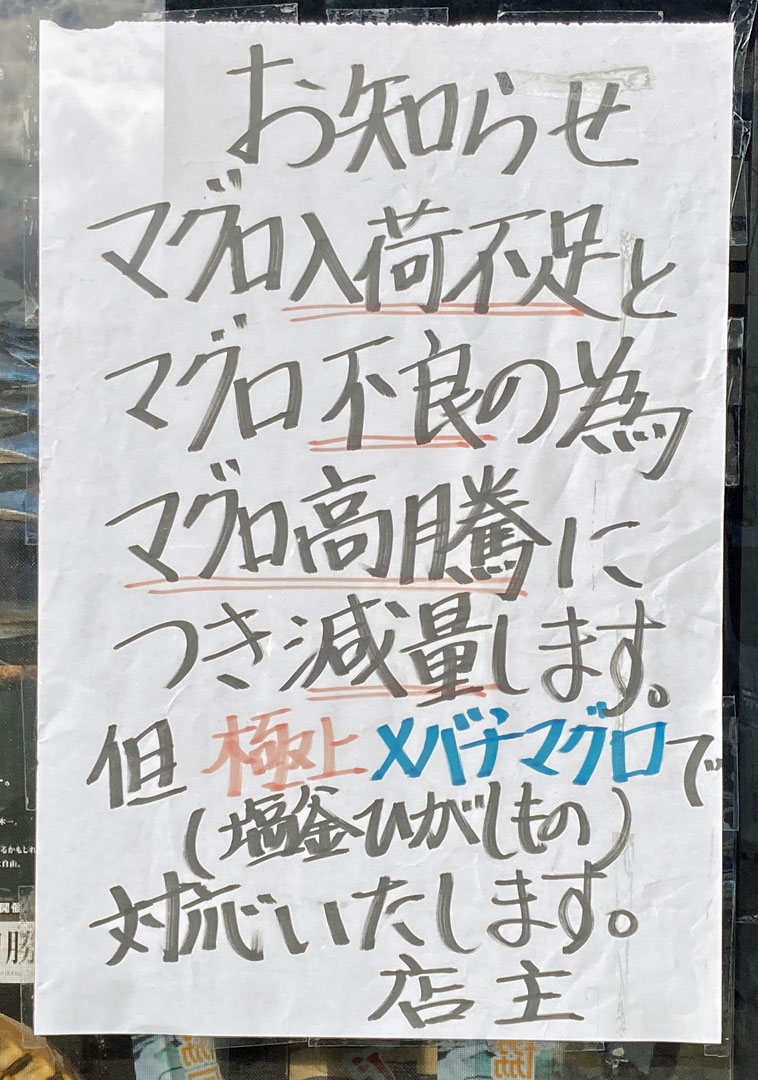 お知らせ
マグロ入荷不足と
マグロ不良の為
マグロ高騰に
つき減量します。
但 極上メバチマグロで
(塩釜ひがしもの)
対応いたします。
店主
るかもしれ
自由。
開催
勝